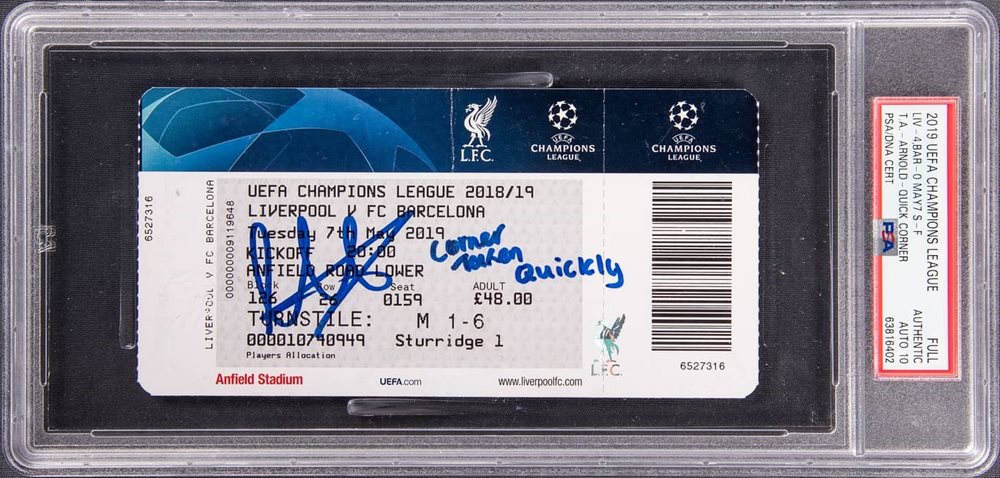 L.F.C.
UEFA
CHAMPIONS
LEAGUE
UEFA
CHAMPIONS
LEAGUE
6527316
LIVERPOOL V FC BARCELONA
000000009119648
UEFA CHAMPIONS LEAGUE 2018/19
LIVERPOOL V FC BARCELONA
Tuesday 7th May 2019
KICKOFF 20:00
ANFIELD ROAD LOWER
Block Row Seat ADULT
126 26 0159 £48.00
TURNSTILE: M 1-6
000010740949 Sturridge 1
Players Allocation
Corner
taken
Quickly
L.F.C.
6527316
Anfield Stadium UEFA.com www.liverpoolfc.com
2019 UEFA CHAMPIONS LEAGUE FULL
LIV - 4,BAR - 0 MAY7 S - F AUTHENTIC
T.A. - ARNOLD - QUICK CORNER AUTO 10
PSA/DNA CERT 63816402
PSA